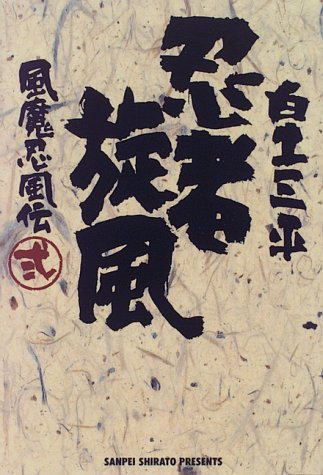 白土三平
忍者
旋風
風魔忍風伝
弐
SANPEI SHIRATO PRESENTS